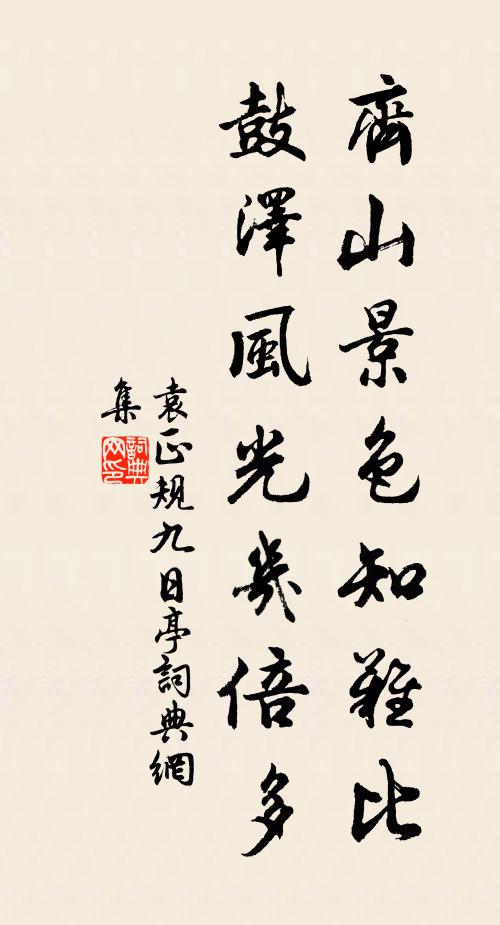 齊山景色知難比
鼓澤風光幾倍多
袁正規九日亭詞典網
集
詞典
网印